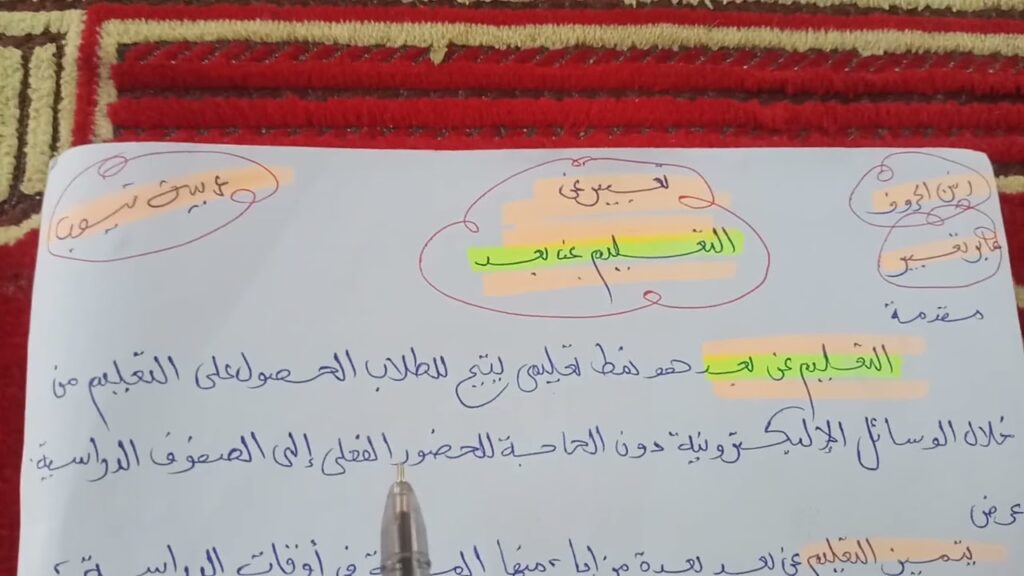 فن الحروف
تعبير عن
عربية تيوب
هاجر تعبير
التعليم عن بعد
مقدمة
التعليم عن بعد هو نمط تعليمي يتيح للطلاب الحصول على التعليم من
خلال الوسائل الإليكترونية دون الحاجة للحضور الفعلي إلى الصفوف الدراسية.
عرض
يتميز التعليم عن بعد بعدة مزايا، منها في أوقات الدراسة،